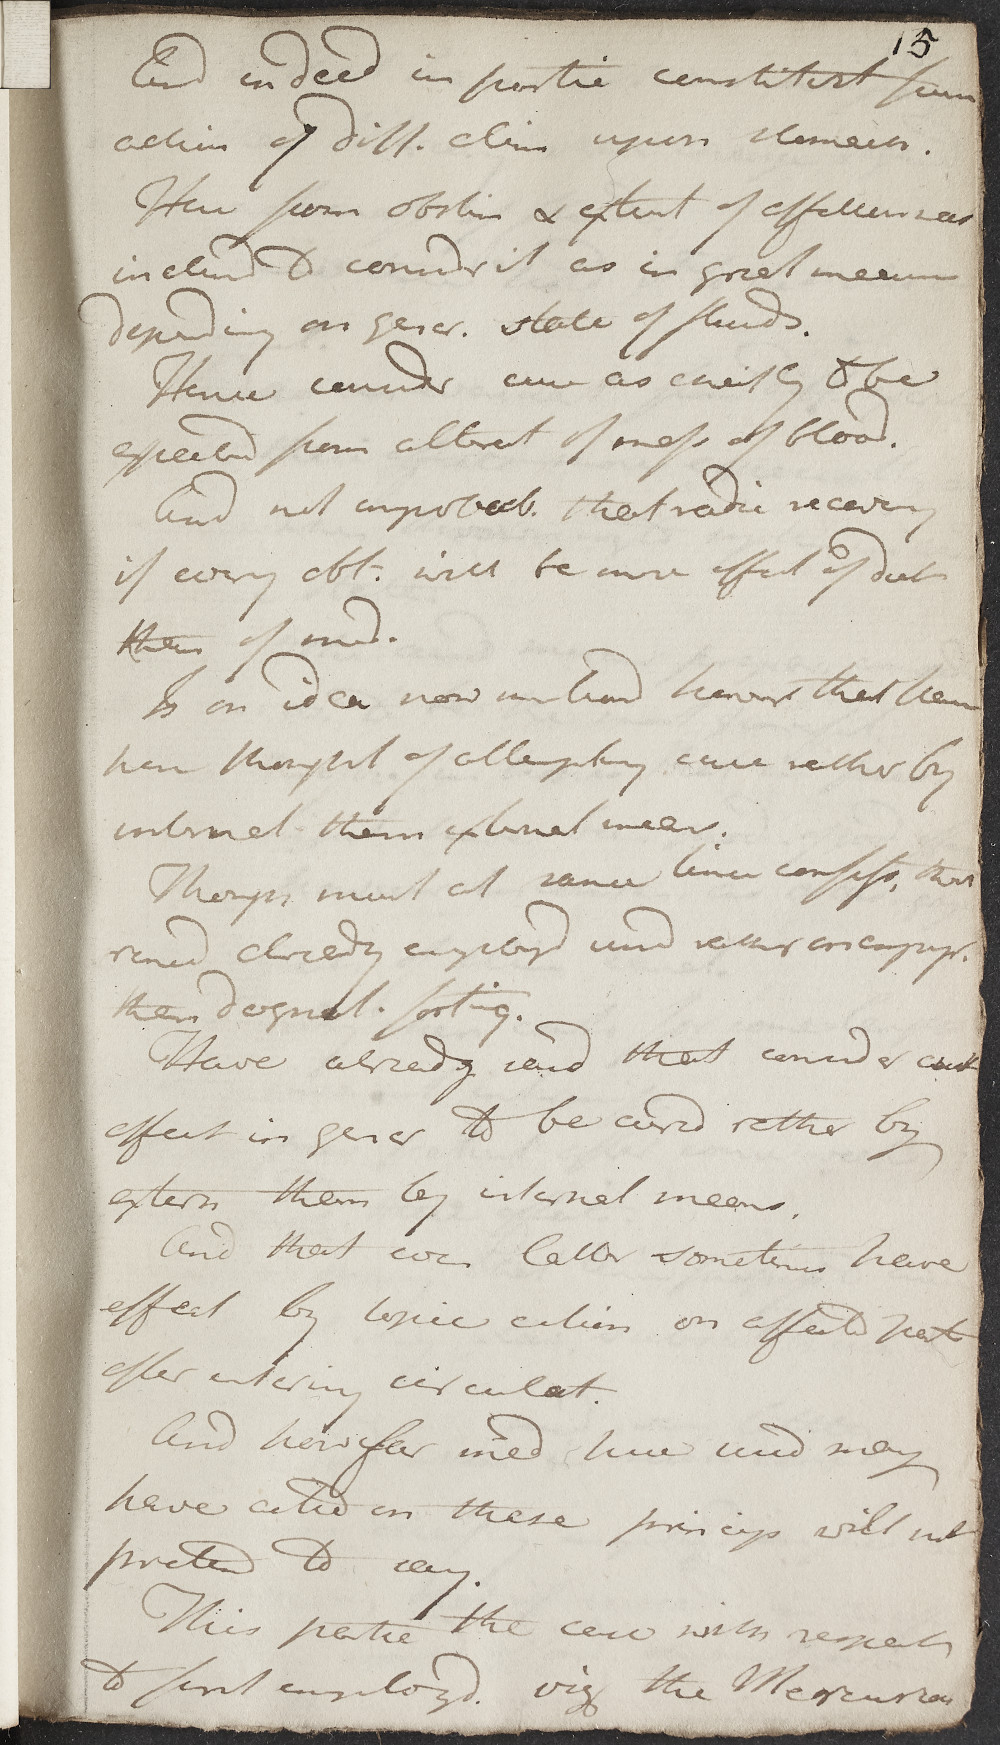 15
And indeed in partic constitut from
action of diff. clim upon Remain.
Here from obstin & extent of affection was
inclind to consider it as in great measure
depending on gener. state of fluids.
Hence consider cure as chiefly to be
expected from alterat of mass of blood.
And not improbab. that radic recovery
if every obt. will be more effect of diet
than of med.
Is an idea now entertaind however that have
here thought of attempting cure rather by
internal than external means.
Though must at same time confess, that
remed already employd used rather on empyr.
than dogmat. footing.
Have already said that consider cut
effect in gener to be cured rather by
extern than by internal means.
And that even latter sometimes have
effect by topic action on affectd part
after entering circulat.
And how far med here used may
have acted on these princips will not
pretend to say.
This partic the case with respect
to first employd. viz the Mercurial